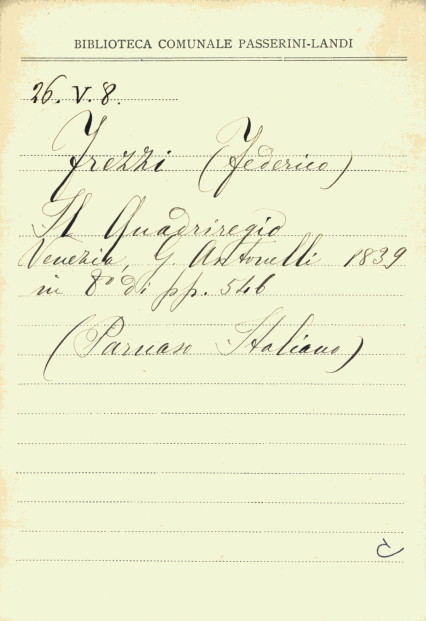 BIBLIOTECA COMUNALE PASSERINI-LANDI
26. V. 8.
Frezzi (Federico)
Il Quadriregio
Venezia, G. Antonelli 1839
in 8º di pp. 546
(Parnaso Italiano)
C